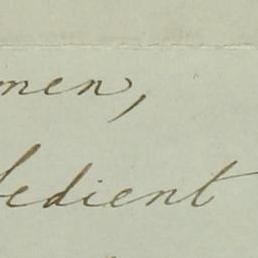 men,
bedient